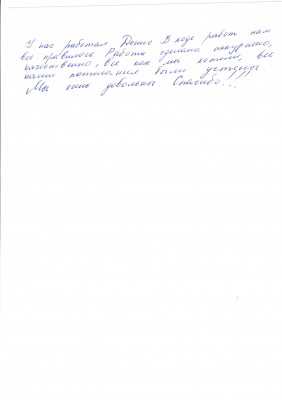 У нас работал Денис В ходе работ нам
все нравилось Работа сделана аккуратно,
качественно, все как мы хотели, все
наши пожелания были учтены
Мы очень довольны Спасибо!!!